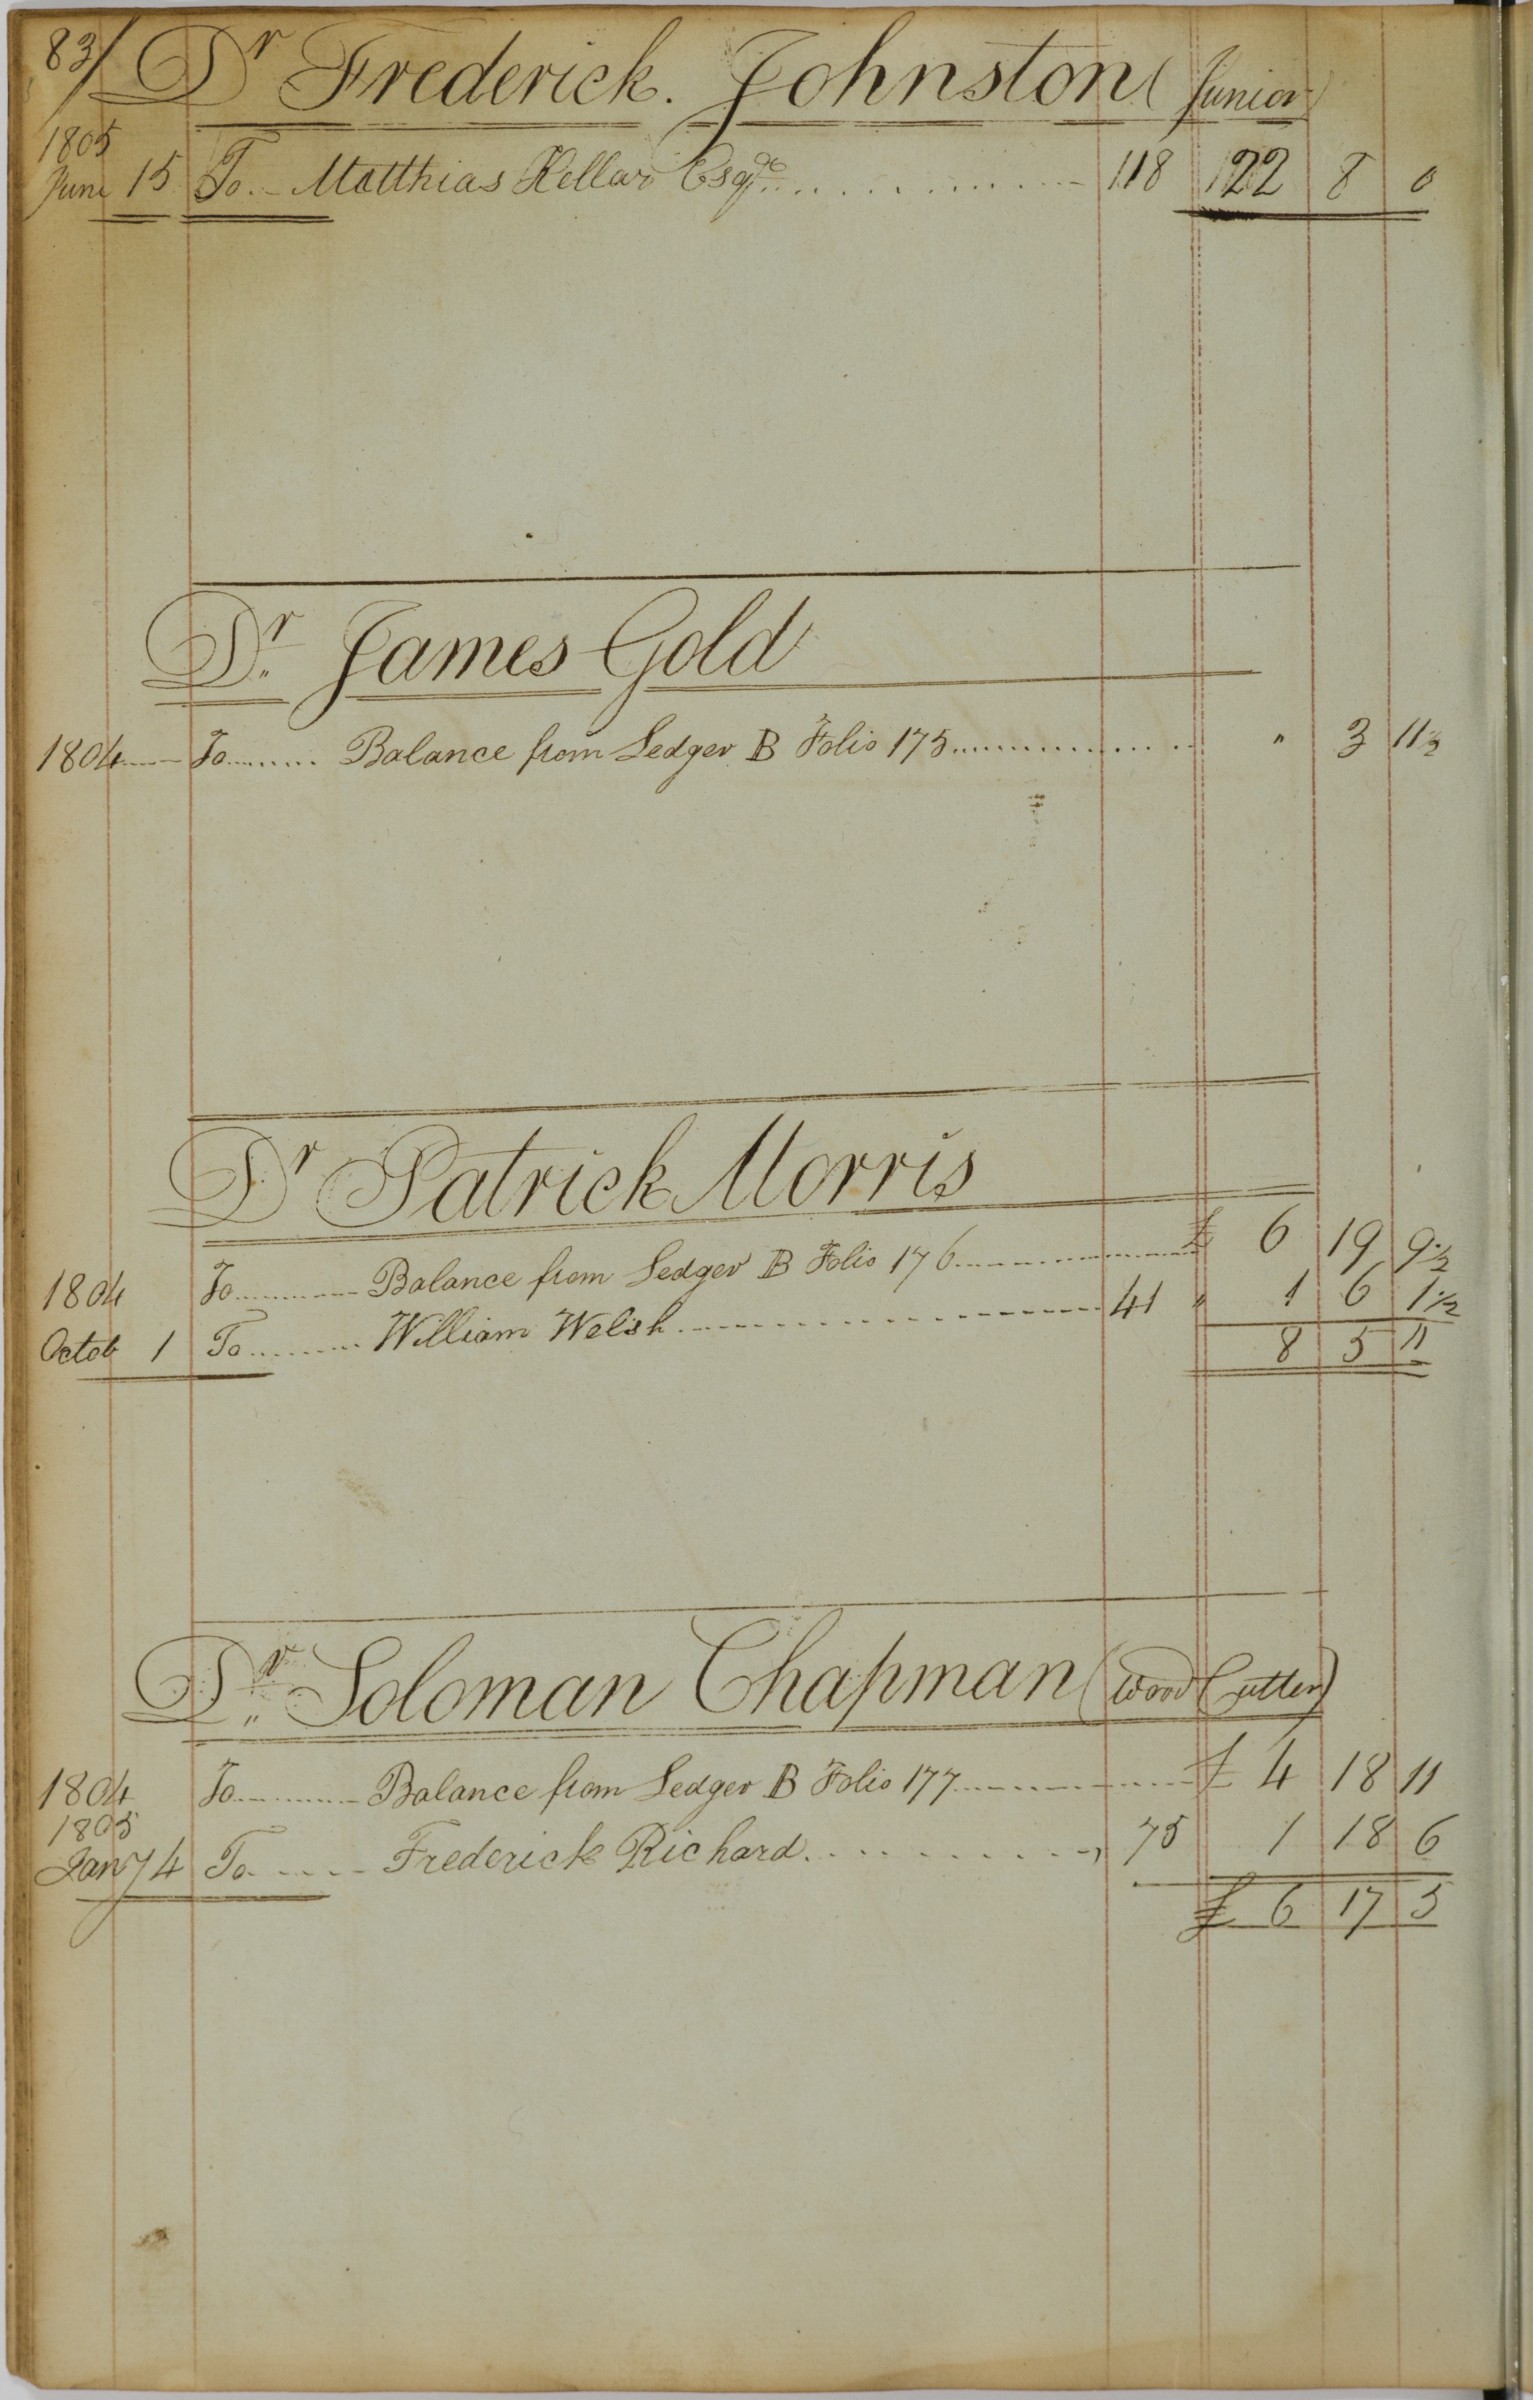 83/ Dr Frederick. Johnston (Junior)
1805
June 15 To Matthias Kellar Esqr 118 122 8 0
Dr James Gold
1804 To Balance from Ledger B Folio 175 " 3 11½
Dr Patrick Morris
1804 To Balance from Ledger B Folio 176 £ 6 19 9½
Octob 1 To William Welsh 41 " 1 6 1½
8 5 11
Dr Soloman Chapman (Wood Cutter)
1804 To Balance from Ledger B Folio 177 £ 4 18 11
1805
Jany 4 To Frederick Richard 75 1 18 6
£ 6 17 5